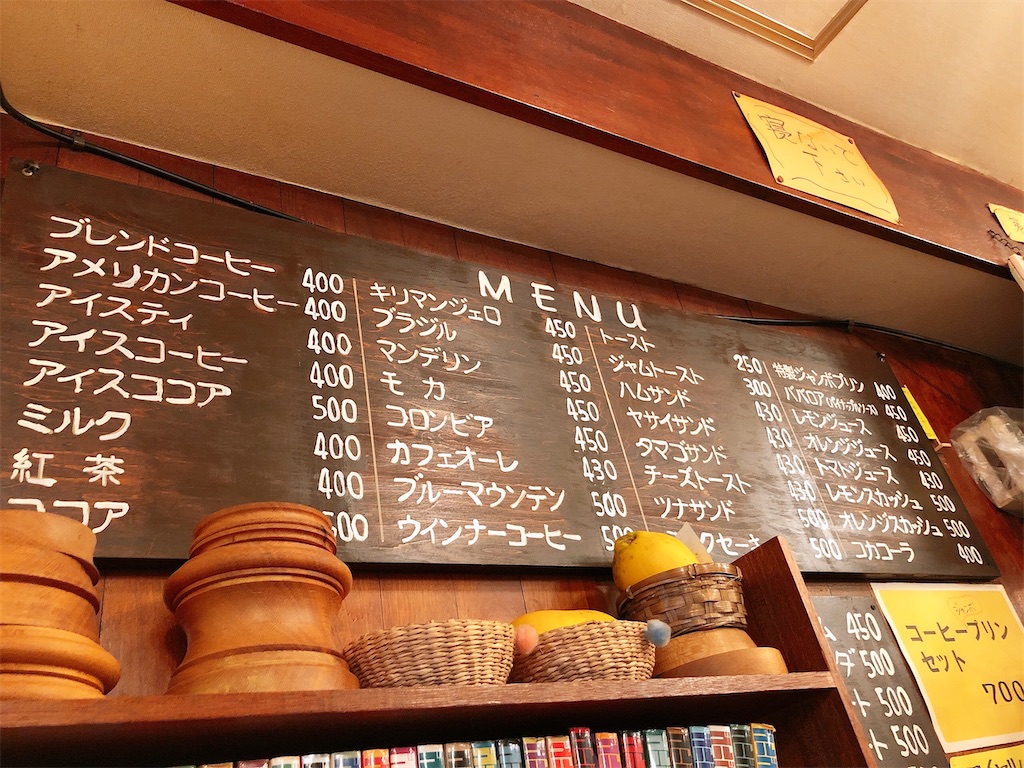 寝ないで
下さい
MENU
ブレンドコーヒー 400
アメリカンコーヒー 400
アイスティ 400
アイスコーヒー 400
アイスココア 500
ミルク 400
紅茶 400
ココア 500
キリマンジェロ 450
ブラジル 450
マンデリン 450
モカ 450
コロンビア 450
カフェオーレ 430
ブルーマウンテン 500
ウインナーコーヒー
トースト 250
ジャムトースト 300
ハムサンド 430
ヤサイサンド 430
タマゴサンド 430
チーズトースト 430
ツナサンド 500
クセーキ 500
特製ジャンボプリン 400
ババロア 450
レモンジュース 450
オレンジジュース 450
トマトジュース 430
レモンスカッシュ 500
オレンジスカッシュ 500
コカコーラ 400
450
ダ 500
ト 500
ト 500
ジャンボ
コーヒープリン
セット
700